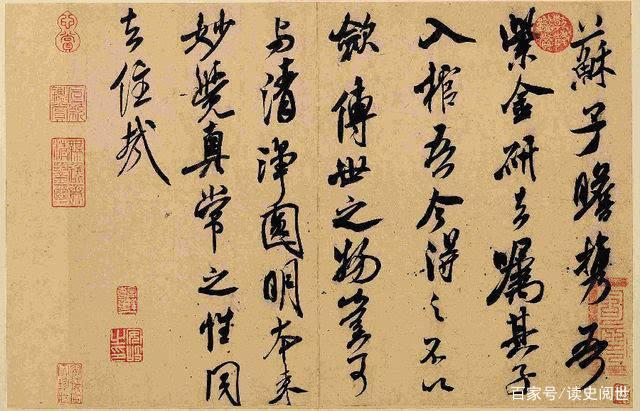 蘇子瞻携吾
紫金研去嘱其子
入棺吾今得之不以
歛傳世之物豈可
与清淨圓明本來
妙覺真常之性同
去住哉
百家号/读史阅世